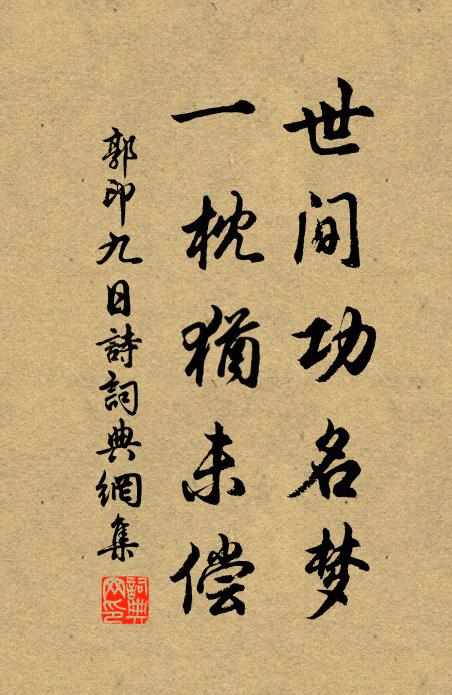 世间功名梦
一枕猶未偿
郭印九日詩詞典網集
詞典网印